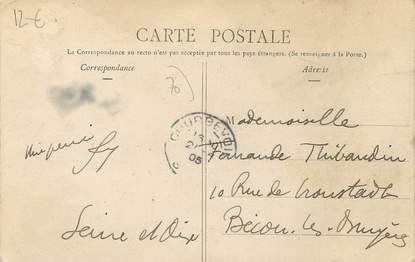 12 €
CARTE POSTALE
La Correspondance au recto n'est pas acceptée par tous les pays étrangers. (Se renseigner à la Poste.)
Correspondance
Adresse
70
COURBEVOIE
05
Mademoiselle
Fernande Thibaudin
10 Rue de Cronstadt
Bécon-les-Bruyères
Seine et Oise